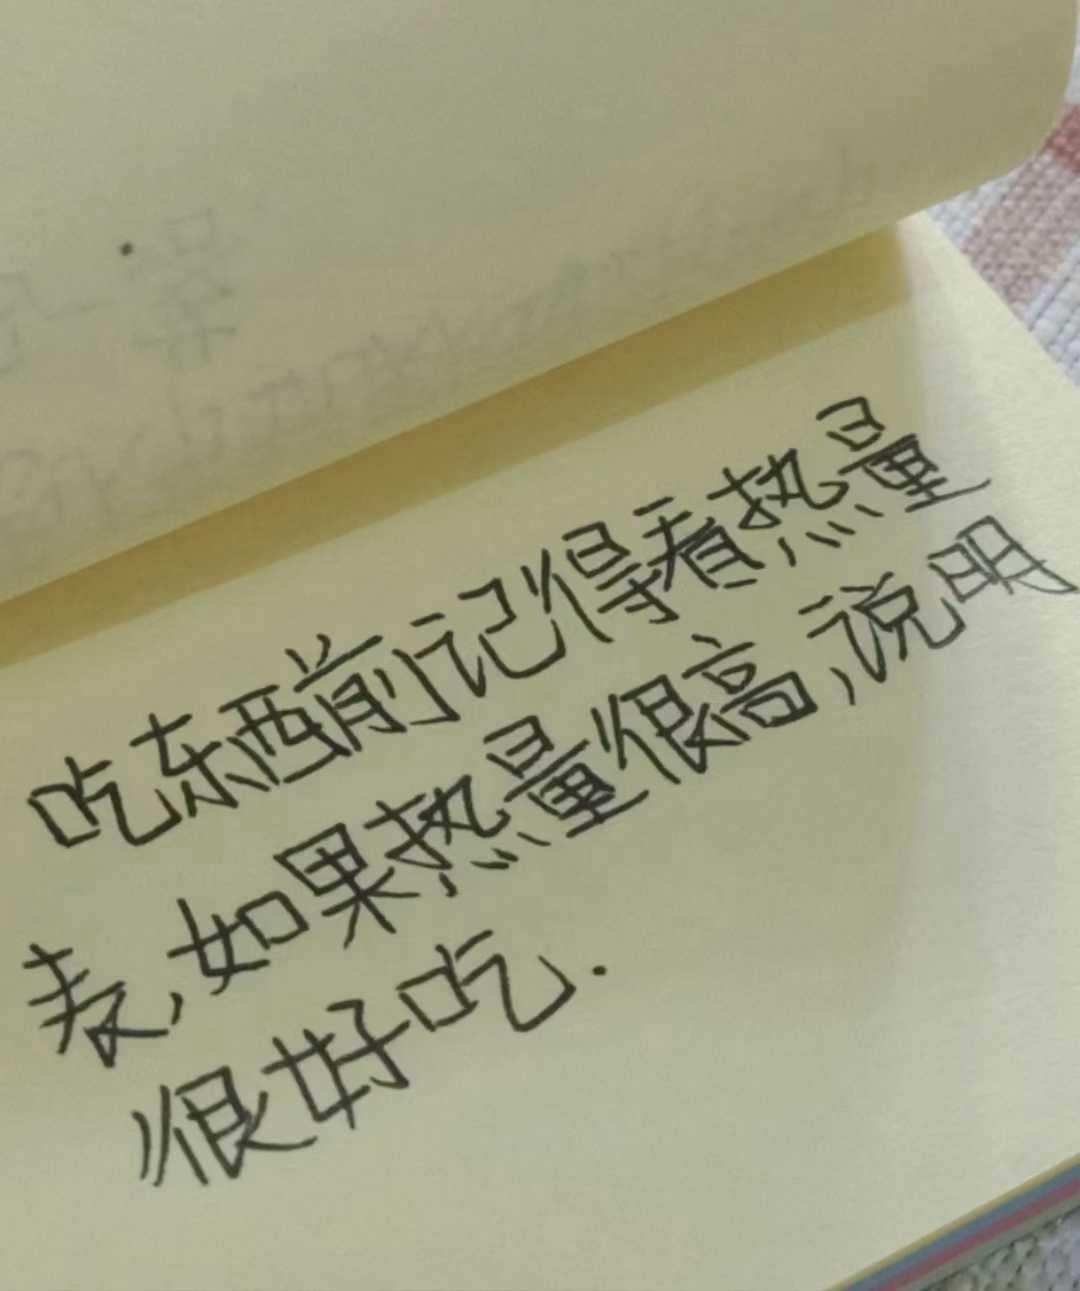 吃东西前记得看热量
表,如果热量很高,说明
很好吃.